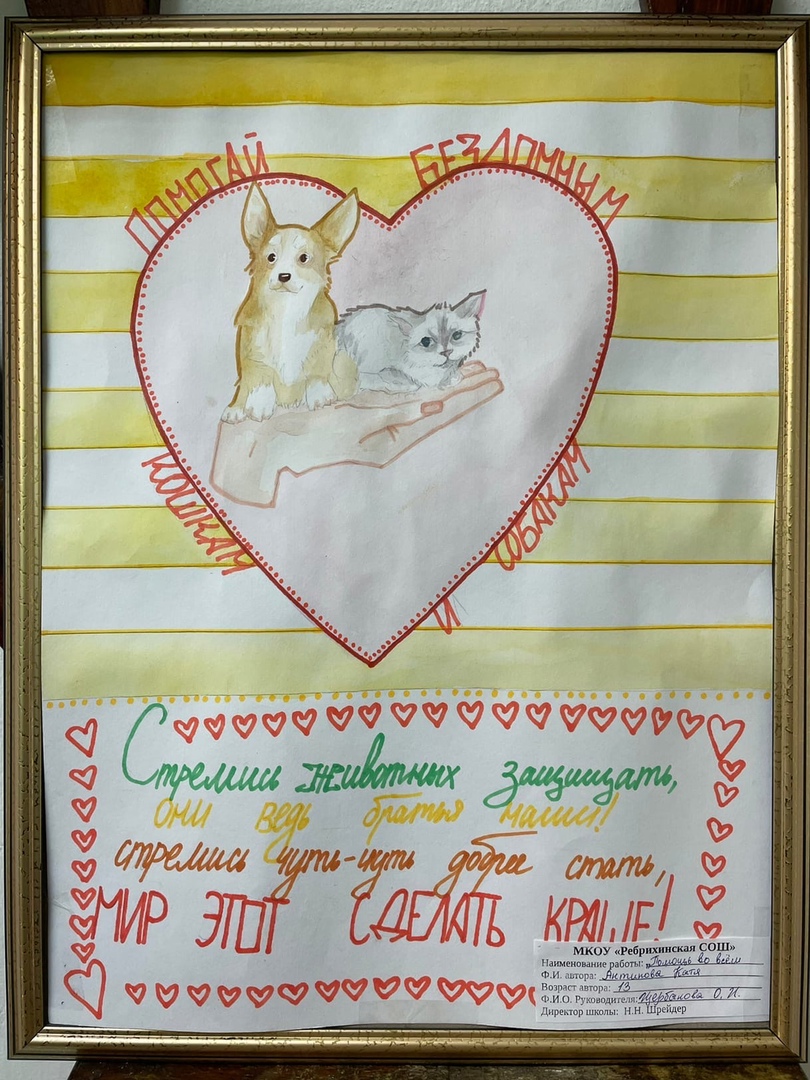 ПОМОГАЙ БЕЗДОМНЫМ
КОШКАМ И СОБАКАМ
Стремись животных защищать,
они ведь братья наши!
стремись чуть-чуть добрее стать,
МИР ЭТОТ СДЕЛАТЬ КРАШЕ!
МКОУ «Ребрихинская СОШ»
Наименование работы: „Помощь во всём
Ф.И. автора: Антипова Катя
Возраст автора: 13
Ф.И.О. Руководителя: Щербакова О. И.
Директор школы: Н.Н. Шрейдер